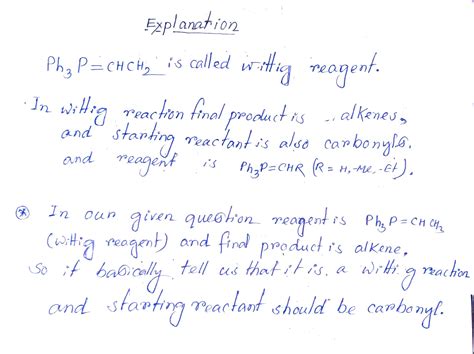 Explanation
Ph3P=CHCH2 is called wittig reagent.
In wittig reaction final product is .. alkenes,
and starting reactant is also carbonyls.
and reagent is Ph3P=CHR (R = H, -Me, -Et).
* In our given question reagent is Ph3P=CHCH3
(wittig reagent) and final product is alkene.
so it basically tell us that it is a wittig reaction
and starting reactant should be carbonyl.